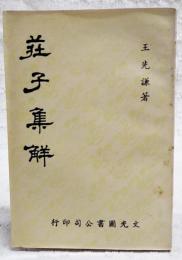 王先謙著
莊子集解
文光圖書公司印行